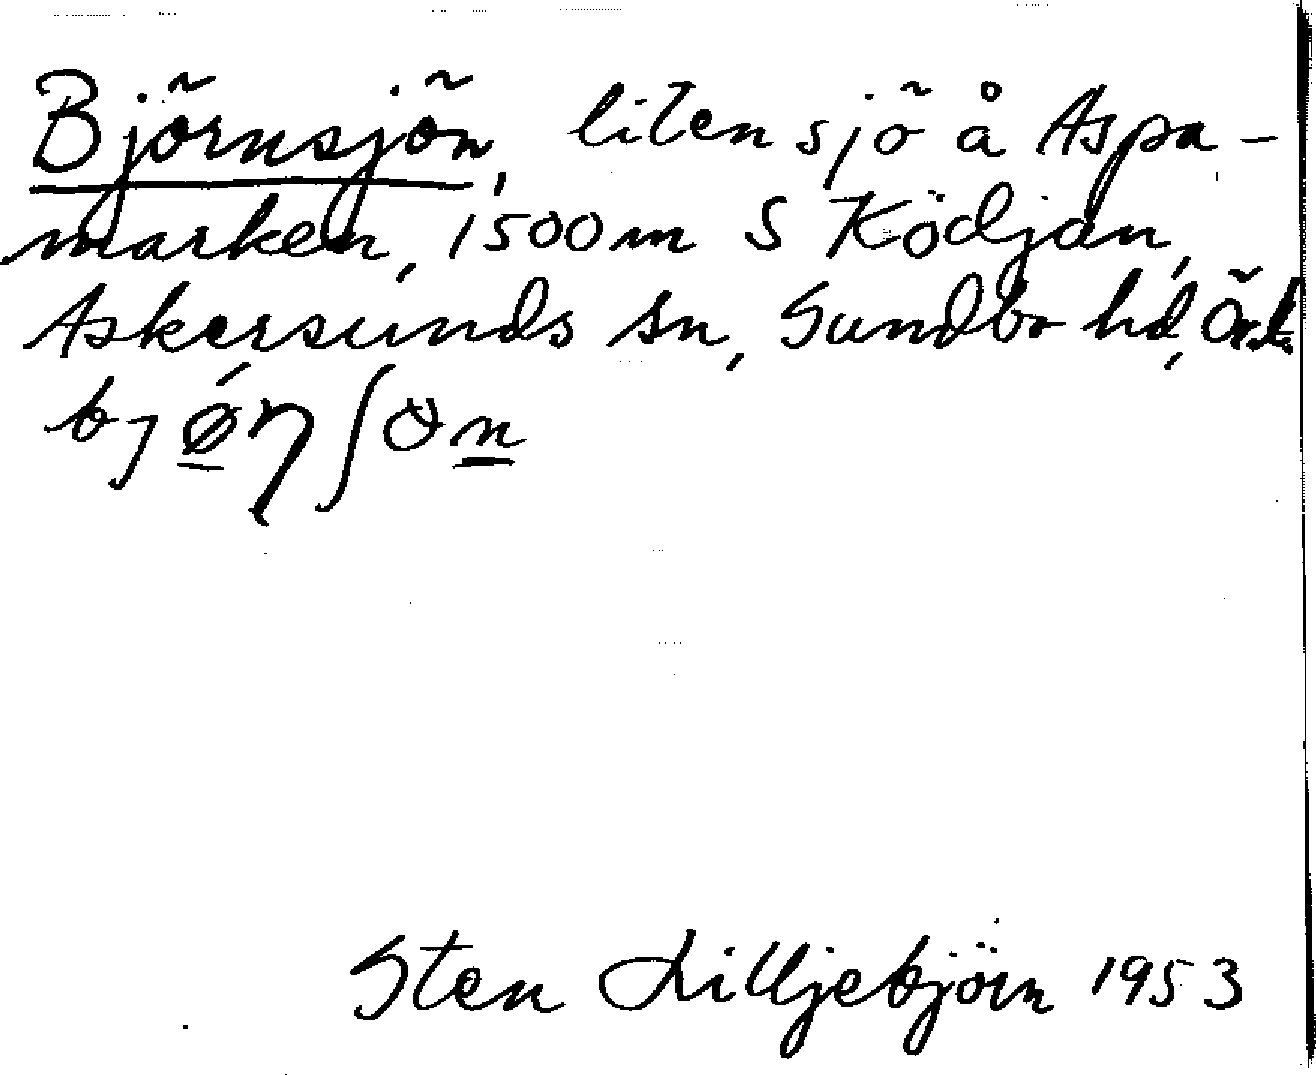 Björnsjön, liten sjö å Aspa-
marken, 1500 m S Ködjan,
Askersunds sn, Sundbo hd,
Sten Lilljebjörn 1953